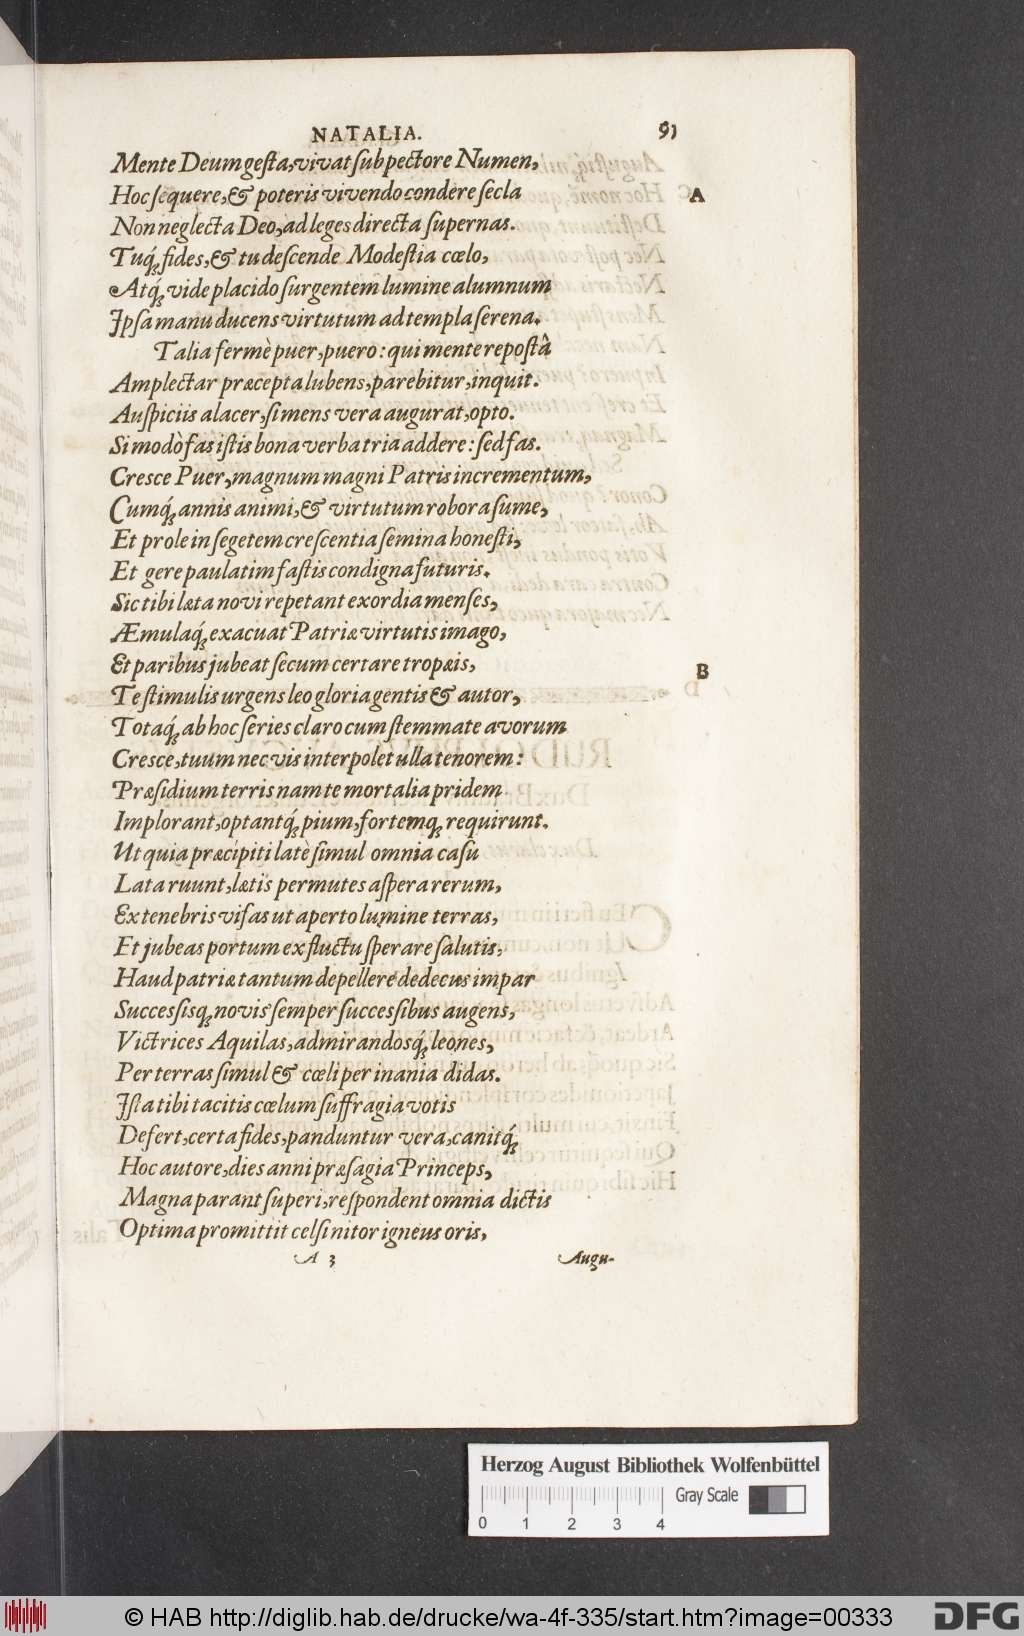 NATALIA. 91
Mente Deum gesta, vivat sub pectore Numen,
Hoc sequere, & poteris vivendo condere secla
A
Non neglecta Deo, ad leges directa supernas.
Tuq́; fides, & tu descende Modestia cœlo,
Atq́; vide placido surgentem lumine alumnum
Ipsa manu ducens virtutum ad templa serena.
Talia fermè puer, puero: qui mente repostâ
Amplectar præcepta lubens, parebitur, inquit.
Auspiciis alacer, si mens vera augurat, opto.
Si modò fas istis bona verba tria addere: sed fas.
Cresce Puer, magnum magni Patris incrementum,
Cumq́; annis animi, & virtutum robora sume,
Et prole in segetem crescentia semina honesti,
Et gere paulatim fastis condigna futuris.
Sic tibi læta novi repetant exordia menses,
Æmulaq́; exacuat Patriæ virtutis imago,
Et paribus jubeat secum certare tropæis,
B
Te stimulis urgens leo gloria gentis & autor,
Totaq́; ab hoc series claro cum stemmate avorum
Cresce, tuum nec vis interpolet ulla tenorem:
Præsidium terris nam te mortalia pridem
Implorant, optantq́; pium, fortemq; requirunt.
Ut quia præcipiti latè simul omnia casu
Lata ruunt, lætis permutes aspera rerum,
Ex tenebris visas ut aperto lumine terras,
Et jubeas portum ex fluctu sperare salutis,
Haud patriæ tantum depellere dedecus impar
Successisq; novis semper successibus augens,
Victrices Aquilas, admirandosq́; leones,
Per terras simul & cœli per inania didas.
Ista tibi tacitis cœlum suffragia votis
Defert, certa fides, panduntur vera, canitq́;
Hoc autore, dies anni præsagia Princeps,
Magna parant superi, respondent omnia dictis
Optima promittit celsi nitor igneus oris,
A 3 Augu-
Herzog August Bibliothek Wolfenbüttel
Gray Scale
0 1 2 3 4
© HAB http://diglib.hab.de/drucke/wa-4f-335/start.htm?image=00333
DFG